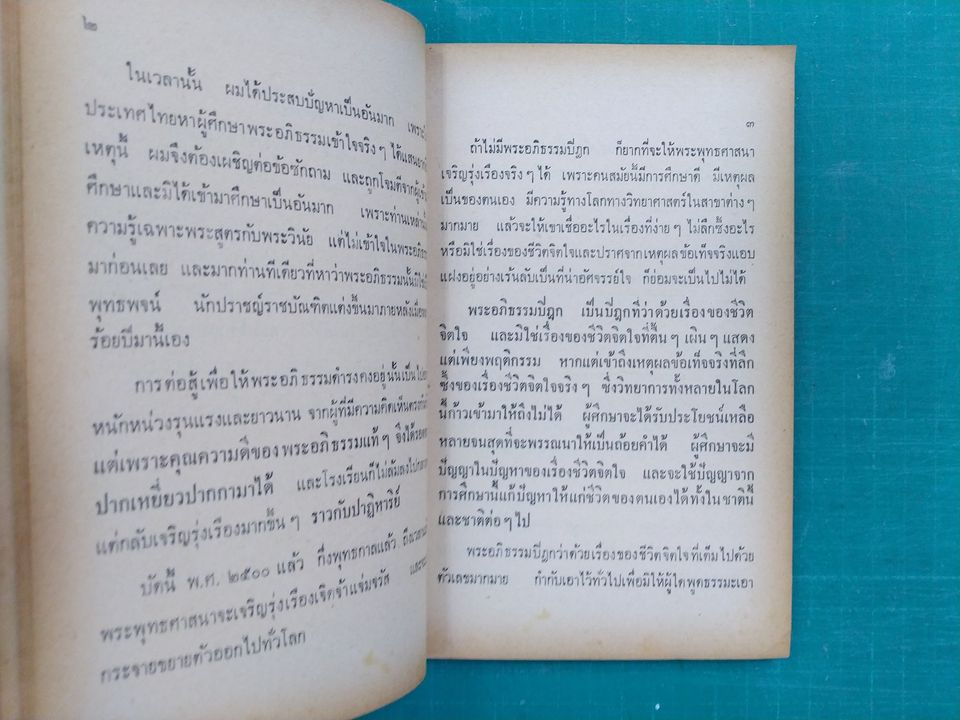 ๒
ในเวลานั้น ผมได้ประสบปัญหาเป็นอันมาก
ประเทศไทยหาผู้ศึกษาพระอภิธรรมเข้าใจจริงๆ ได้แสน
เหตุนี้ ผมจึงต้องเผชิญต่อข้อซักถาม และถูกโจมตีจาก
ศึกษาและมิได้เข้ามาศึกษาเป็นอันมาก เพราะท่าน
ความรู้เฉพาะพระสูตรกับพระวินัย แต่ไม่เข้าใจใน
มาก่อนเลย และมากท่านทีเดียวที่หาว่าพระอภิธรรมนั้น
พุทธพจน์ นักปราชญ์ราชบัณฑิตแต่งขึ้นมาภายหลัง
ร้อยปีมานี้เอง
การต่อสู้เพื่อให้พระอภิธรรมดำรงคงอยู่นั้นเป็น
หนักหน่วงรุนแรงและยาวนาน จากผู้ที่มีความคิดเห็น
แต่เพราะคุณความดีของพระอภิธรรมแท้ๆ จึงได้
ปากเหยี่ยวปากกามาได้ และโรงเรียนก็ไม่ล้มลงไป
แต่กลับเจริญรุ่งเรืองมากขึ้นๆ ราวกับปาฏิหาริย์
บัดนี้ พ.ศ. ๒๕๐๐ แล้ว กึ่งพุทธกาลแล้ว
พระพุทธศาสนาจะเจริญรุ่งเรืองเจิดจ้าแจ่มจรัส
กระจายขยายตัวออกไปทั่วโลก
๓
ถ้าไม่มีพระอภิธรรมปิฎก ก็ยากที่จะให้พระพุทธศาสนา
เจริญรุ่งเรืองจริงๆ ได้ เพราะคนสมัยนี้มีการศึกษาดี มีเหตุผล
เป็นของตนเอง มีความรู้ทางโลกทางวิทยาศาสตร์ในสาขาต่างๆ
มากมาย แล้วจะให้เขาเชื่ออะไรในเรื่องที่ง่ายๆ ไม่ลึกซึ้งอะไร
หรือมิใช่เรื่องของชีวิตจิตใจและปราศจากเหตุผลข้อเท็จจริงแอบ
แฝงอยู่อย่างเร้นลับเป็นที่น่าอัศจรรย์ใจ ก็ย่อมจะเป็นไปไม่ได้
พระอภิธรรมปิฎก เป็นปิฎกที่ว่าด้วยเรื่องของชีวิต
จิตใจ และมิใช่เรื่องของชีวิตจิตใจที่ตื้นๆ เผินๆ แสดง
แต่เพียงพฤติกรรม หากแต่เข้าถึงเหตุผลข้อเท็จจริงที่ลึก
ซึ้งของเรื่องชีวิตจิตใจจริงๆ ซึ่งวิทยาการทั้งหลายในโลก
นี้ก้าวเข้ามาให้ถึงไม่ได้ ผู้ศึกษาจะได้รับประโยชน์เหลือ
หลายจนสุดที่จะพรรณนาให้เป็นถ้อยคำได้ ผู้ศึกษาจะมี
ปัญญาในปัญหาของเรื่องชีวิตจิตใจ และจะใช้ปัญญาจาก
การศึกษานี้แก้ปัญหาให้แก่ชีวิตของตนเองได้ทั้งในชาตินี้
และชาติต่อๆ ไป
พระอภิธรรมปิฎกว่าด้วยเรื่องของชีวิตจิตใจที่เต็มไปด้วย
ตัวเลขมากมาย กำกับเอาไว้ทั่วไปเพื่อมิให้ผู้ใดพูดธรรมะเอา